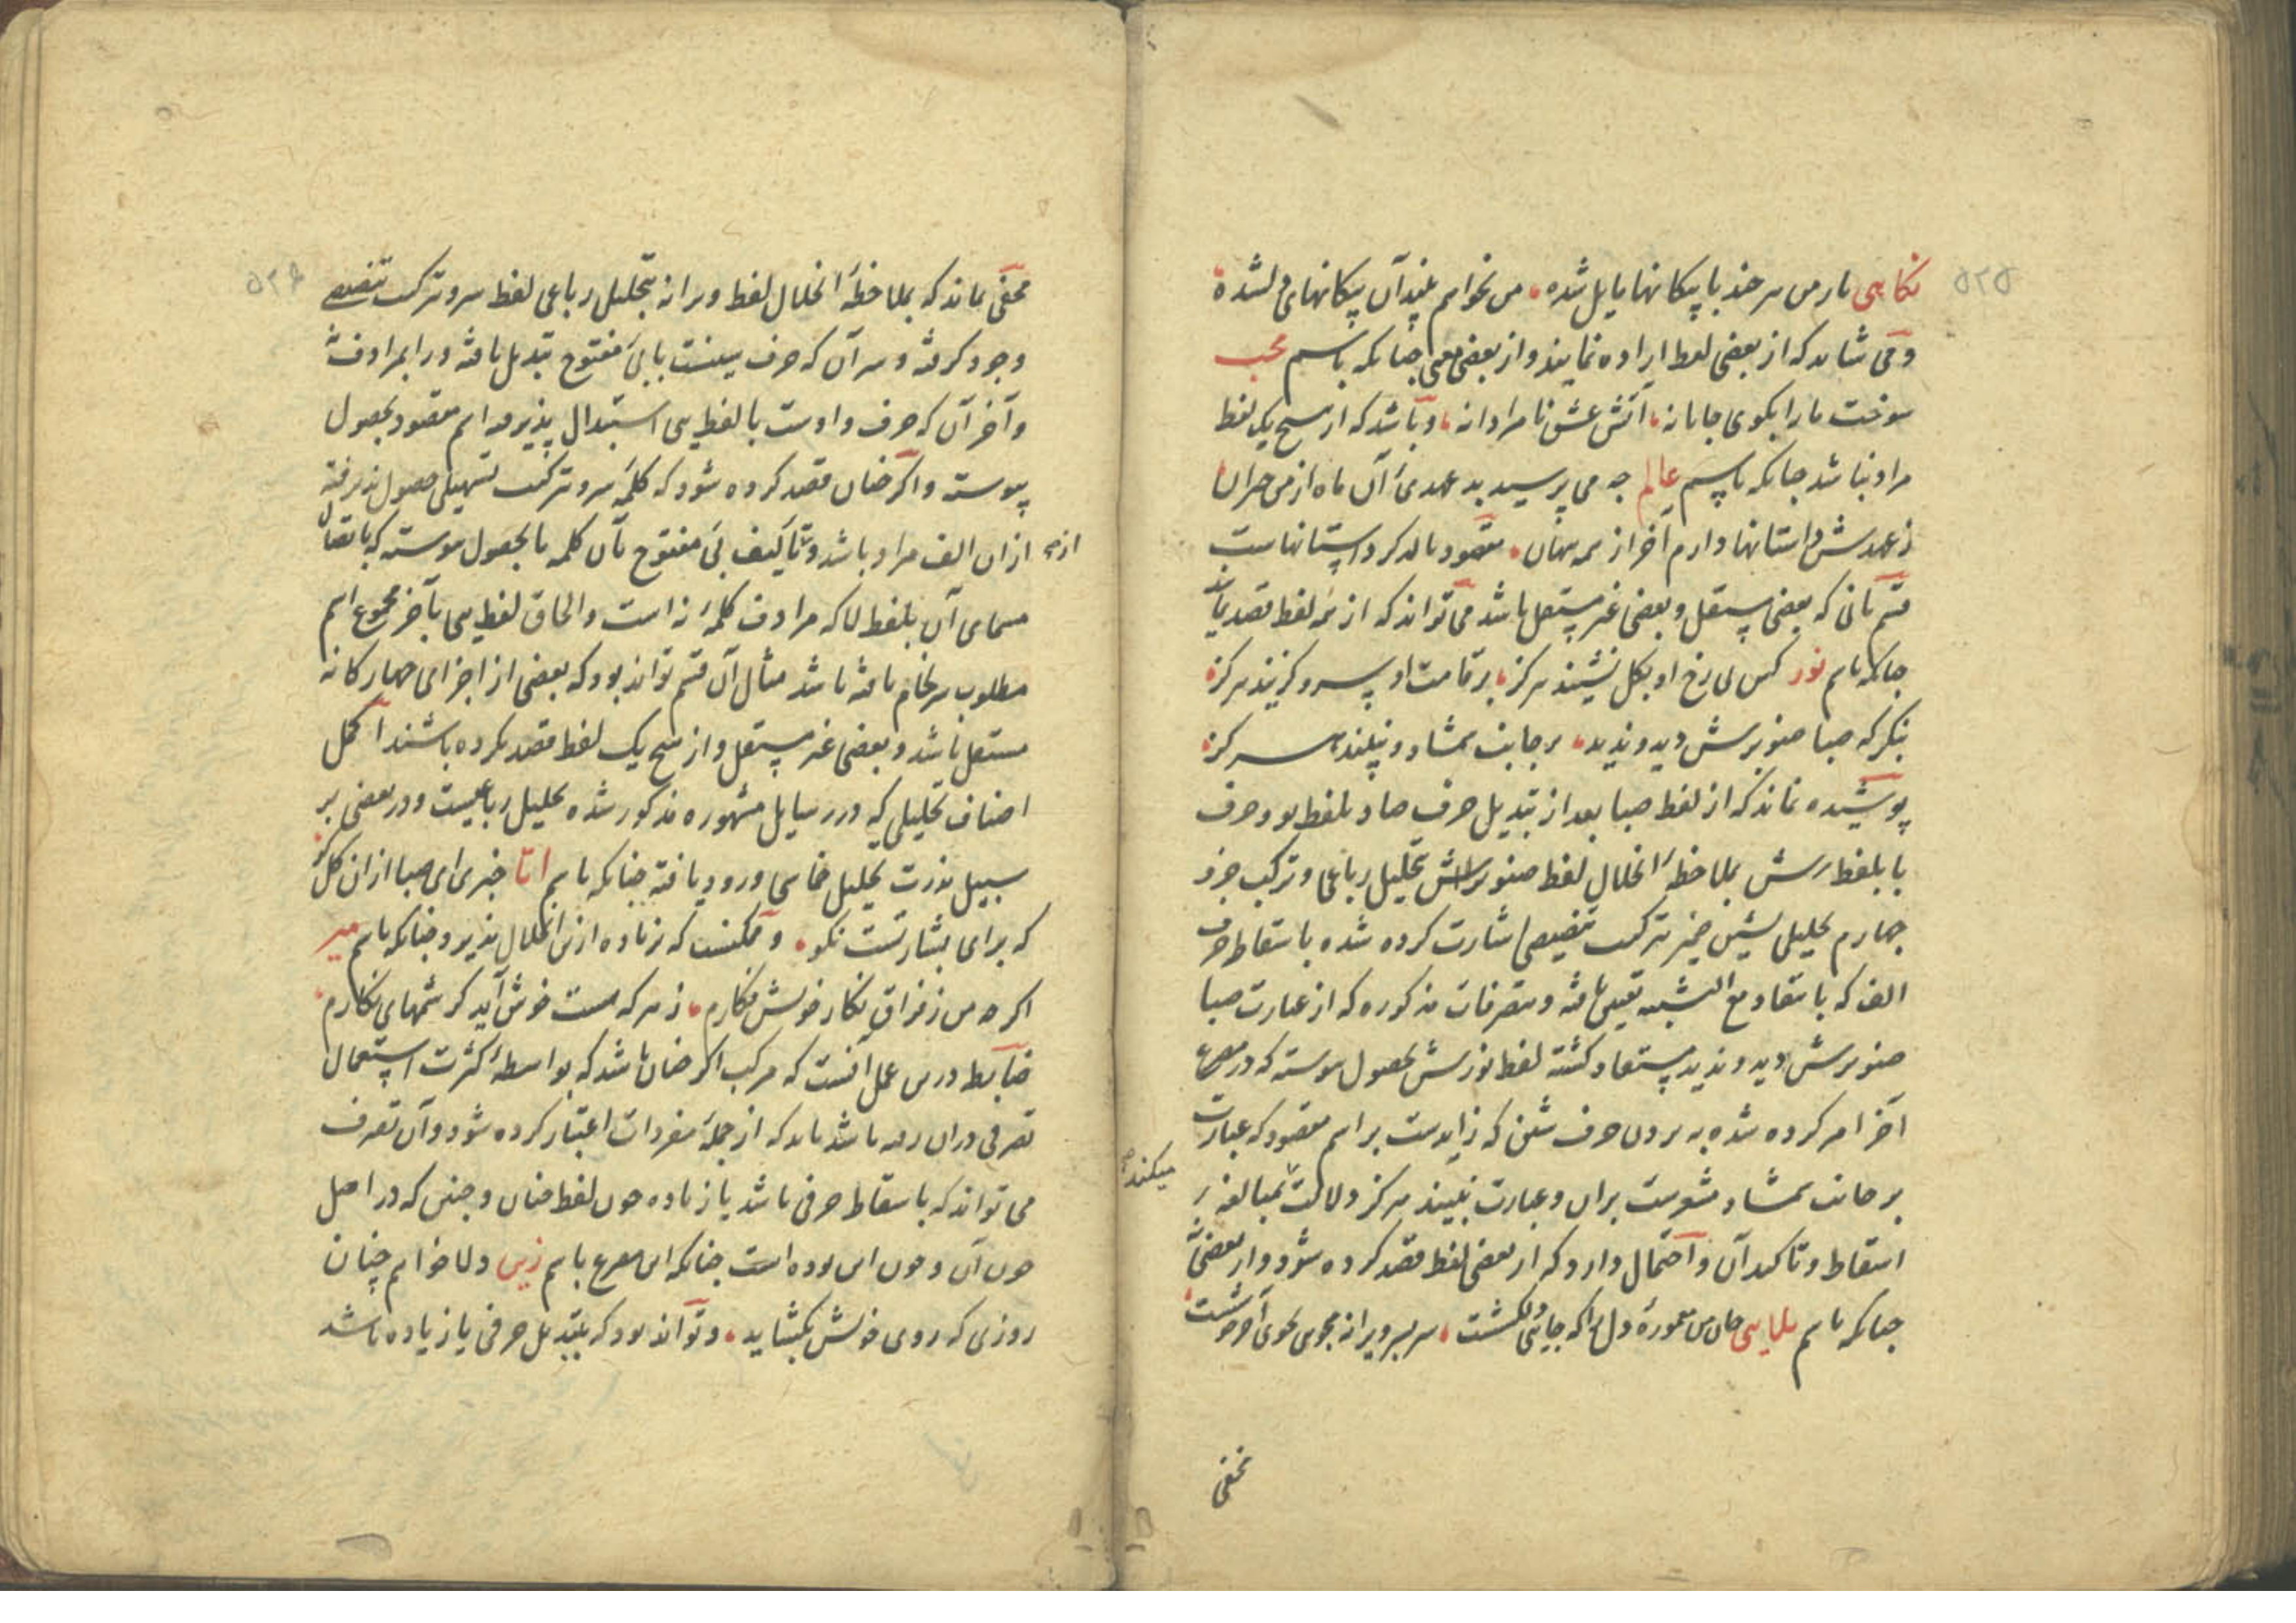 ۵۲۵
نکاهی یار من هر چند با پیکانها یایل شده من نخواهم پلیدآن پیکانهای دلشده
و می شاید که از بعضی لفظ اراده نمایند و از بعضی معنی چنانکه باسم محب
سوخت مارا بکوی جانانه آتش عشق نامرادانه و باشد که از هیچ یک لفظ
مراد نباشد چنانکه باسم عالم چه می پرسید بد عهدیٔ آن ماه از من حیران
ز عهدش داستانها دارم آخر از همه پنهان مقصود بالذکر داستانهاست
قسم ثانی که بعضی مستقل و بعضی غیر مستقل باشد می تواند که از همه لفظ قصد نمایند
چنانکه باسم نور کس بی رخ او بگل نشیند هرگز بر قامت او سرو گزیند هرگز
بنگر که صبا صنوبرش دید و ندید بر جانب شمشاد نبیند هرگز
پوشیده نماند که از لفظ صبا بعد از تبدیل حرف صاد بلفظ بو و حرف
با بلفظ رش بملاحظهٔ انحلال لفظ صنوبرش بتحلیل رباعی و ترکیب جزو
چهارم تحلیل بشین ضمیر بترکیب تنصیصی اشارت کرده شده باسقاط حرف
الف که بانتقاد مع التشبیه تعیین یافته و بتصرفات مذکوره که از عبارت صبا
صنوبرش دید و ندید مستفاد کشته لفظ نورش بحصول پیوسته که در مصرع
آخر امر کرده شده به بردن حرف شین که زایدست بر اسم مقصود که عبارت
بر جانب شمشاد مشعرست بران و عبارت نبیند هرگز دلالت بمبالغه بر
میکند
اسقاط و تاکید آن و احتمال دارد که از بعضی لفظ قصد کرده شود و از بعضی نه
چنانکه باسم جان من معمورهٔ دل را که جای کشت سر بسر ویرانه
مخفی
۵۲۶
مخفی نماند که بملاحظهٔ انحلال لفظ ویرانه بتحلیل رباعی لفظ سر و بترکیب تنصیصی
وجود گرفته و سر آن که حرف سینست بابئ مفتوح تبدیل یافته و را بمرادفش
و آخر آن که حرف واوست با لفظ یی استبدال پذیرفته اسم مقصود بحصول
پیوسته و اگر چنان قصد کرده شود که کلمهٔ سر و بترکیب تسهیلی حصول پذیرفته
ازه
ازان الف مراد باشد و بتألیف بئ مفتوح بآن کلمه با بحصول پیوسته که باتصال
مسمای آن بلفظ لا که مرادف کلمهٔ نه است و الحاق لفظ یی بآخر مجموع اسم
مطلوب سرانجام یافته باشد مثال آن قسم تواند بود که بعضی از اجزای چهارگانه
مستقل باشد و بعضی غیر مستقل و از هیچ یک لفظ قصد نکرده باشند اکمل
اصناف تحلیلی که در رسایل مشهوره مذکور شده تحلیل رباعیست و در بعضی بر
سبیل ندرت تحلیل خماسی ورود یافته چنانکه باسم اتا خبری ای صبا ازان گل کو
که برای بشارتست نکو و ممکنست که زیاده ازین انحلال پذیرد چنانکه باسم میر
اگر چه من ز فراق نگار خویش فکارم ز هر که هست خوش آید کرشمهای نکارم
ضابط درین عمل آنست که مرکب اگر چنان باشد که بواسطهٔ کثرت استعمال
تصرفی دران رفته باشد باید که از جملهٔ مفردات اعتبار کرده شود و آن تصرف
می تواند که باسقاط حرفی باشد یا زیاده چون لفظ چنان و چنین که در اصل
چون آن و چون این بوده است چنانکه این مصرع باسم زین دلا خواهم چنان
روزی که روی خویش بگشاید و تواند بود که بتبدیل حرفی یا زیاده باشد